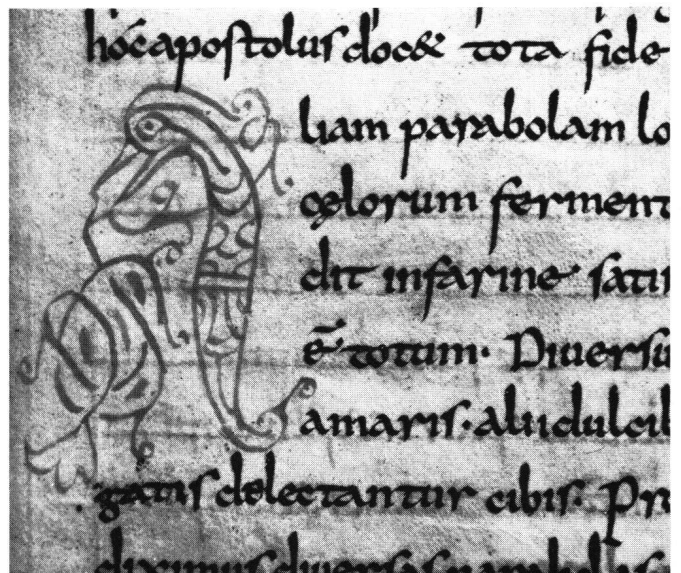 hoc apostolus doc& tota fide
A liam parabolam lo
cęlorum ferment
dit in farine satis
ē totum. Diuersis
amaris. alii dulcib
gatis delectantur cibis. Pr
diximus diuersas parabolas